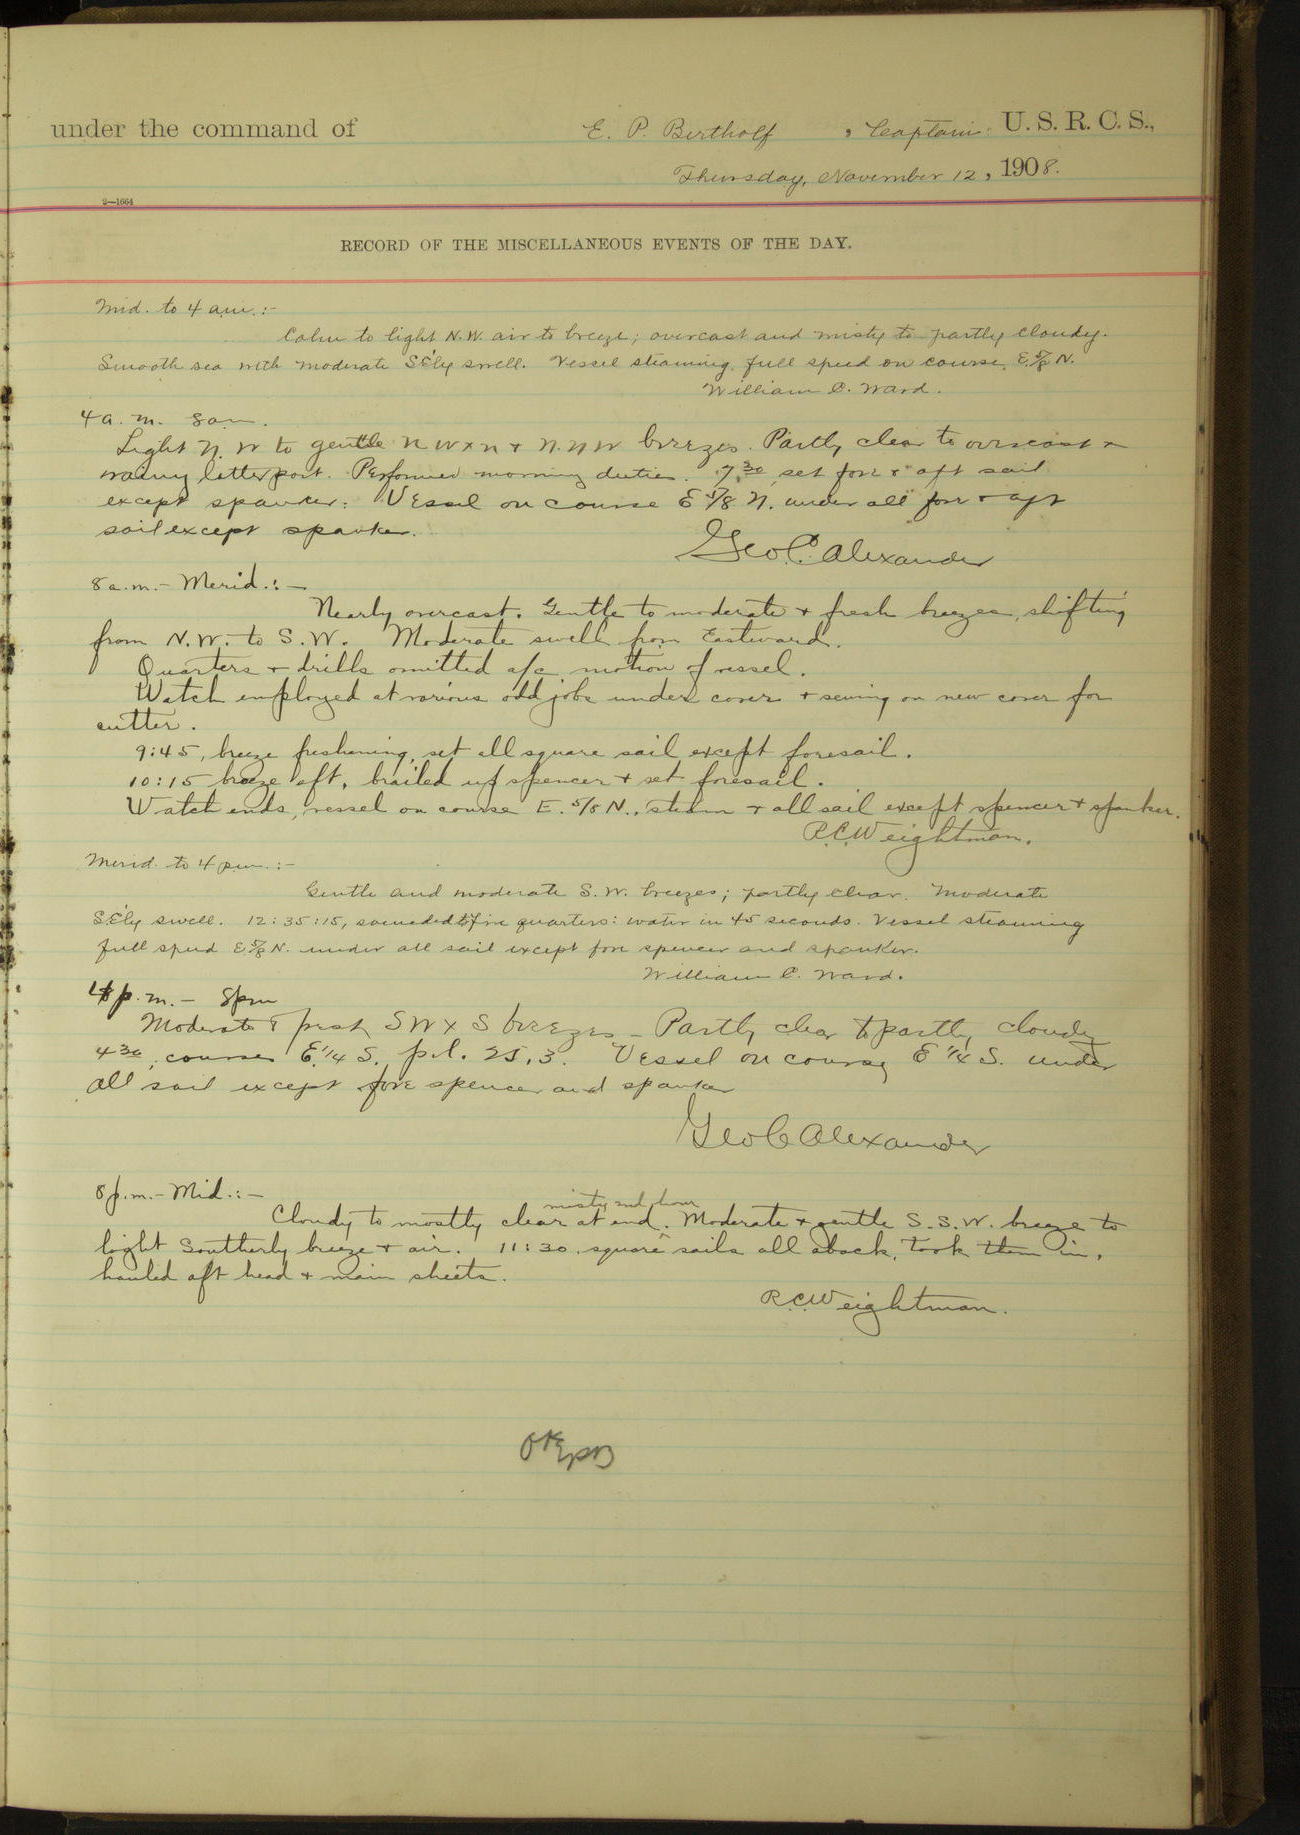 under the command of E. P. Bertholf, Captain U. S. R. C. S.,
Thursday, November 12, 1908.
2—1664
RECORD OF THE MISCELLANEOUS EVENTS OF THE DAY.
Mid. to 4 a.m.:-
Calm to light N.W. air to breeze; overcast and misty to partly cloudy.
Smooth sea with moderate S'E'ly swell. Vessel steaming full speed on course, E. 5/8 N.
William C. Ward.
4 a. m. 8 am.
Light N. W to gentle N W x N + N. N W breezes. Partly clear to overcast +
rainy latter part. Performed morning duties. 7.30, set fore + aft sail
except spanker. Vessel on course E 5/8 N. under all fore + aft
sail except spanker.
Geo. C. Alexander
8 a.m. - Merid.:-
Nearly overcast. Gentle to moderate + fresh breezes, shifting
from N.W. to S.W. Moderate swell from Eastward.
Quarters + drills omitted a/c motion of vessel.
Watch employed at various odd jobs under cover + sewing on new cover for
cutter.
9:45, breeze freshening, set all square sail except foresail.
10:15 breeze aft, brailed up spencer + set foresail.
Watch ends, vessel on course E. 5/8 N., steam + all sail except spencer + spanker.
R.C. Weightman.
Merid. to 4 p.m.:-
Gentle and moderate S. W. breezes; partly clear. Moderate
S'E'ly swell. 12:35:15, sounded to fire quarters: water in 45 seconds. Vessel steaming
full speed E 5/8 N. under all sail except fore spencer and spanker.
William C. Ward.
4 p. m. - 8 pm
Moderate & fresh S W x S breezes - Partly clear to partly cloudy
4 30, course E. 1/4 S. p.l. 25.3. Vessel on course E 1/4 S. under
all sail except fore spencer and spanker
Geo C Alexander
8 p.m. - Mid.:-
misty 2nd hour
Cloudy to mostly clear at end. Moderate + gentle S. S. W. breeze to
light Southerly breeze + air. 11:30, square sails all aback, took them in,
hauled aft head + main sheets.
R. C. Weightman.
OK EPB